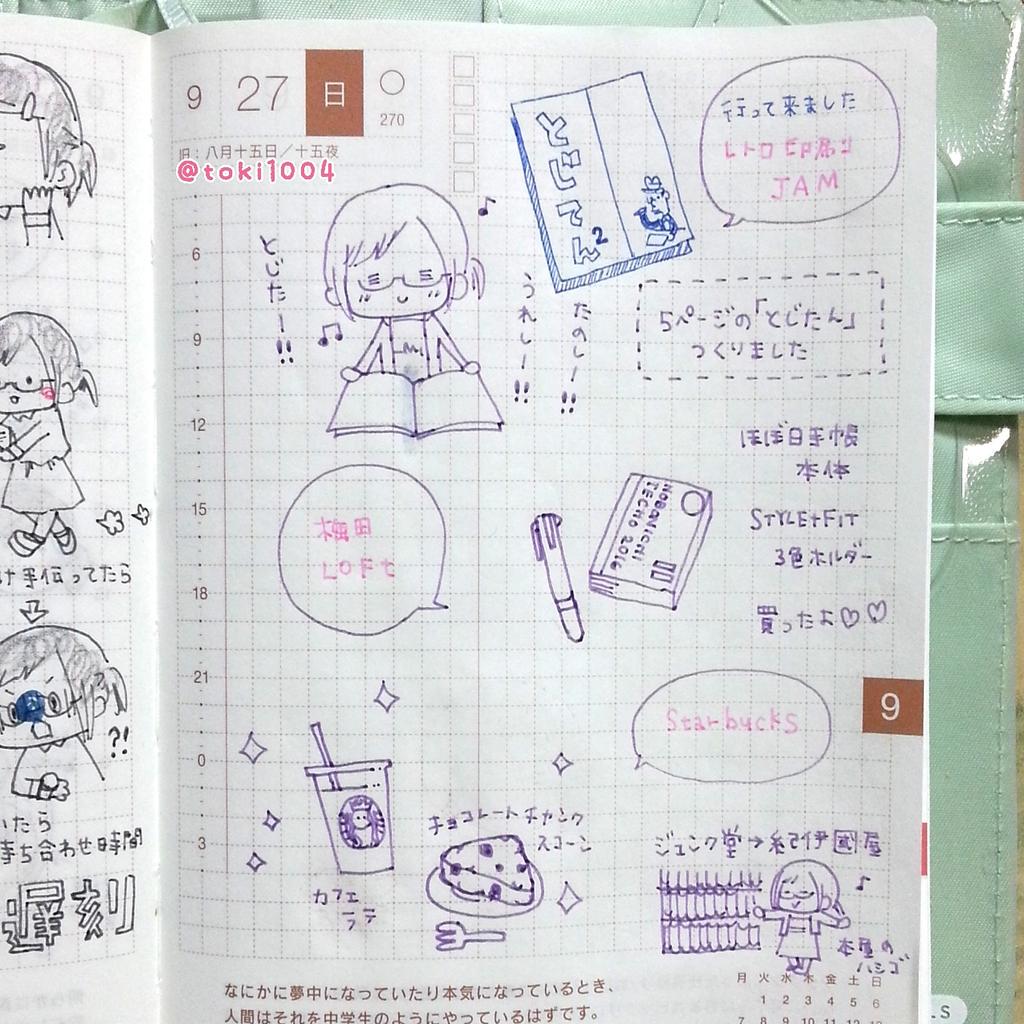 9 27 日
270
旧：八月十五日／十五夜
@toki1004
行って来ました
レトロ印刷
JAM
とじてん²
とじたー!!
うれしー!!
たのしー!!
5ページの「とじたん」
つくりました
6
9
12
15
18
21
0
3
ほぼ日手帳
本体
STYLE+FIT
3色ホルダー
買ったよ♡♡
HOBONICHI
TECHO 2016
梅田
LOFt
9
Starbucks
チョコレートチャンク
スコーン
カフェ
ラテ
ジュンク堂→紀伊國屋
本屋の
ハシゴ
け手伝ってたら
?!
いたら
待ち合わせ時間
遅刻
なにかに夢中になっていたり本気になっているとき、
人間はそれを中学生のようにやっているはずです。
月 火 水 木 金 土 日
1 2 3 4 5 6
7 8 9 10 11 12 13
LS